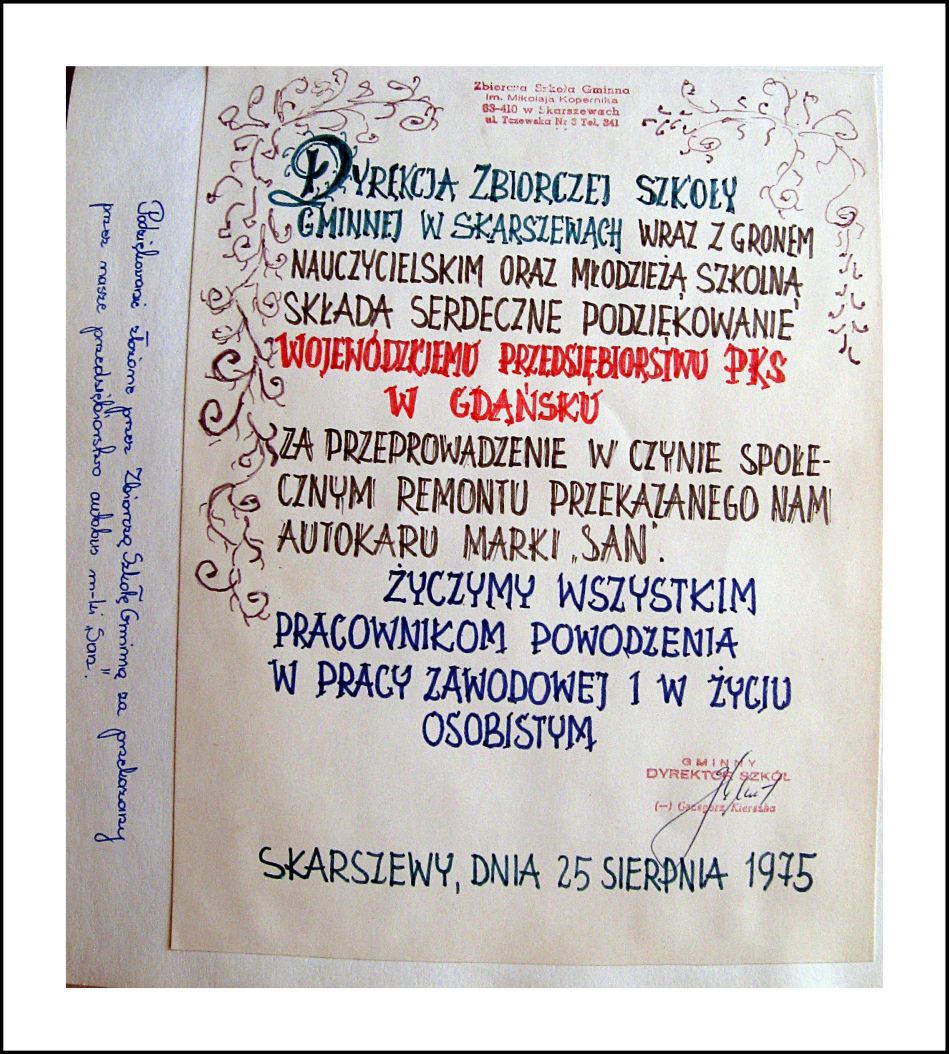 Zbiorcza Szkoła Gminna
im. Mikołaja Kopernika
83-410 w Skarszewach
ul. Tczewska Nr 3 Tel. 341
DYREKCJA ZBIORCZEJ SZKOŁY
GMINNEJ W SKARSZEWACH WRAZ Z GRONEM
NAUCZYCIELSKIM ORAZ MŁODZIEŻĄ SZKOLNĄ
SKŁADA SERDECZNE PODZIĘKOWANIE
WOJEWÓDZKIEMU PRZEDSIĘBIORSTWU PKS
W GDAŃSKU
ZA PRZEPROWADZENIE W CZYNIE SPOŁE-
CZNYM REMONTU PRZEKAZANEGO NAM
AUTOKARU MARKI „SAN".
ŻYCZYMY WSZYSTKIM
PRACOWNIKOM POWODZENIA
W PRACY ZAWODOWEJ I W ŻYCIU
OSOBISTYM
GMINNY
DYREKTOR SZKÓŁ
(—) Grzegorz Kierszka
SKARSZEWY, DNIA 25 SIERPNIA 1975
Podziękowanie złożone przez Zbiorczą Szkołę Gminną za przekazany
przez nasze przedsiębiorstwo autobus m-ki „San".